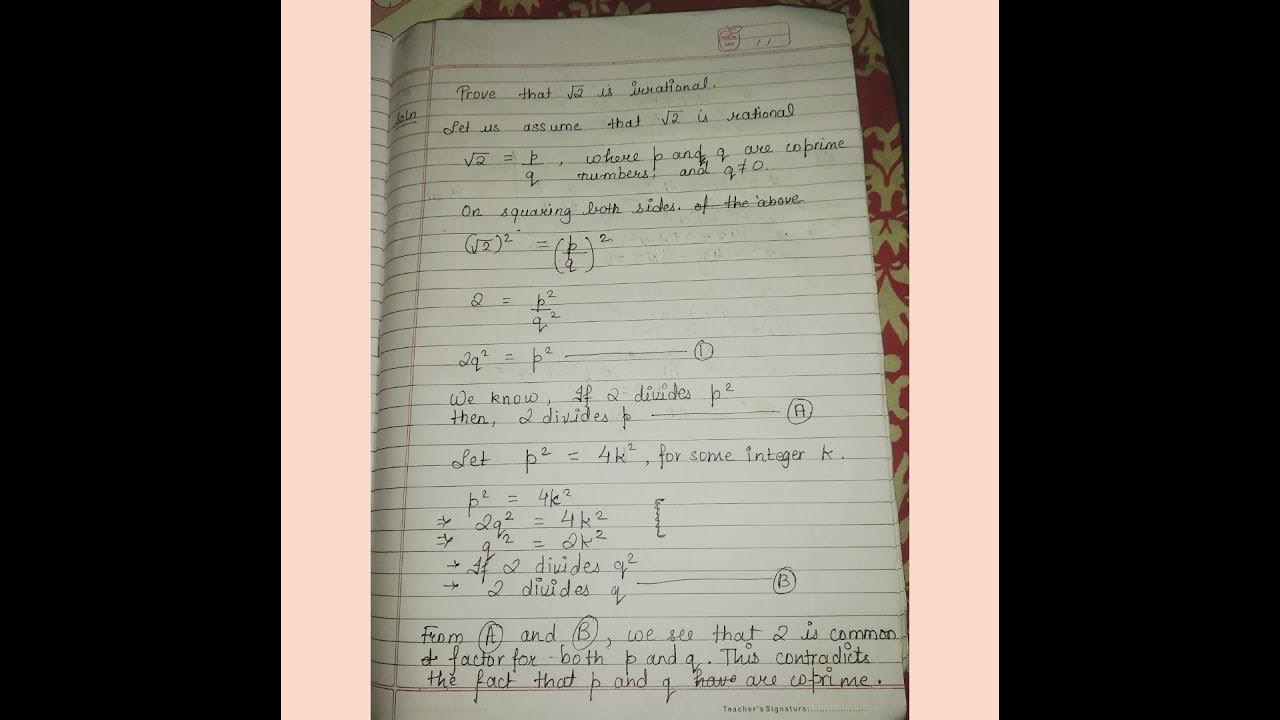 11
Prove that √2 is irrational.
Soln
Let us assume that √2 is rational
√2 = p/q, where p and q are coprime
numbers, and q≠0.
On squaring both sides. of the above
(√2)² = (p/q)²
2 = p²/q²
2q² = p² ——— ①
We know, If 2 divides p²
then, 2 divides p ——— Ⓐ
Let p² = 4k², for some integer k.
p² = 4k²
⇒ 2q² = 4k²
⇒ q² = 2k²
→ If 2 divides q²
→ 2 divides q ——— Ⓑ
From Ⓐ and Ⓑ, we see that 2 is common
factor for both p and q. This contradicts
the fact that p and q have are coprime.
Teacher's Signature: